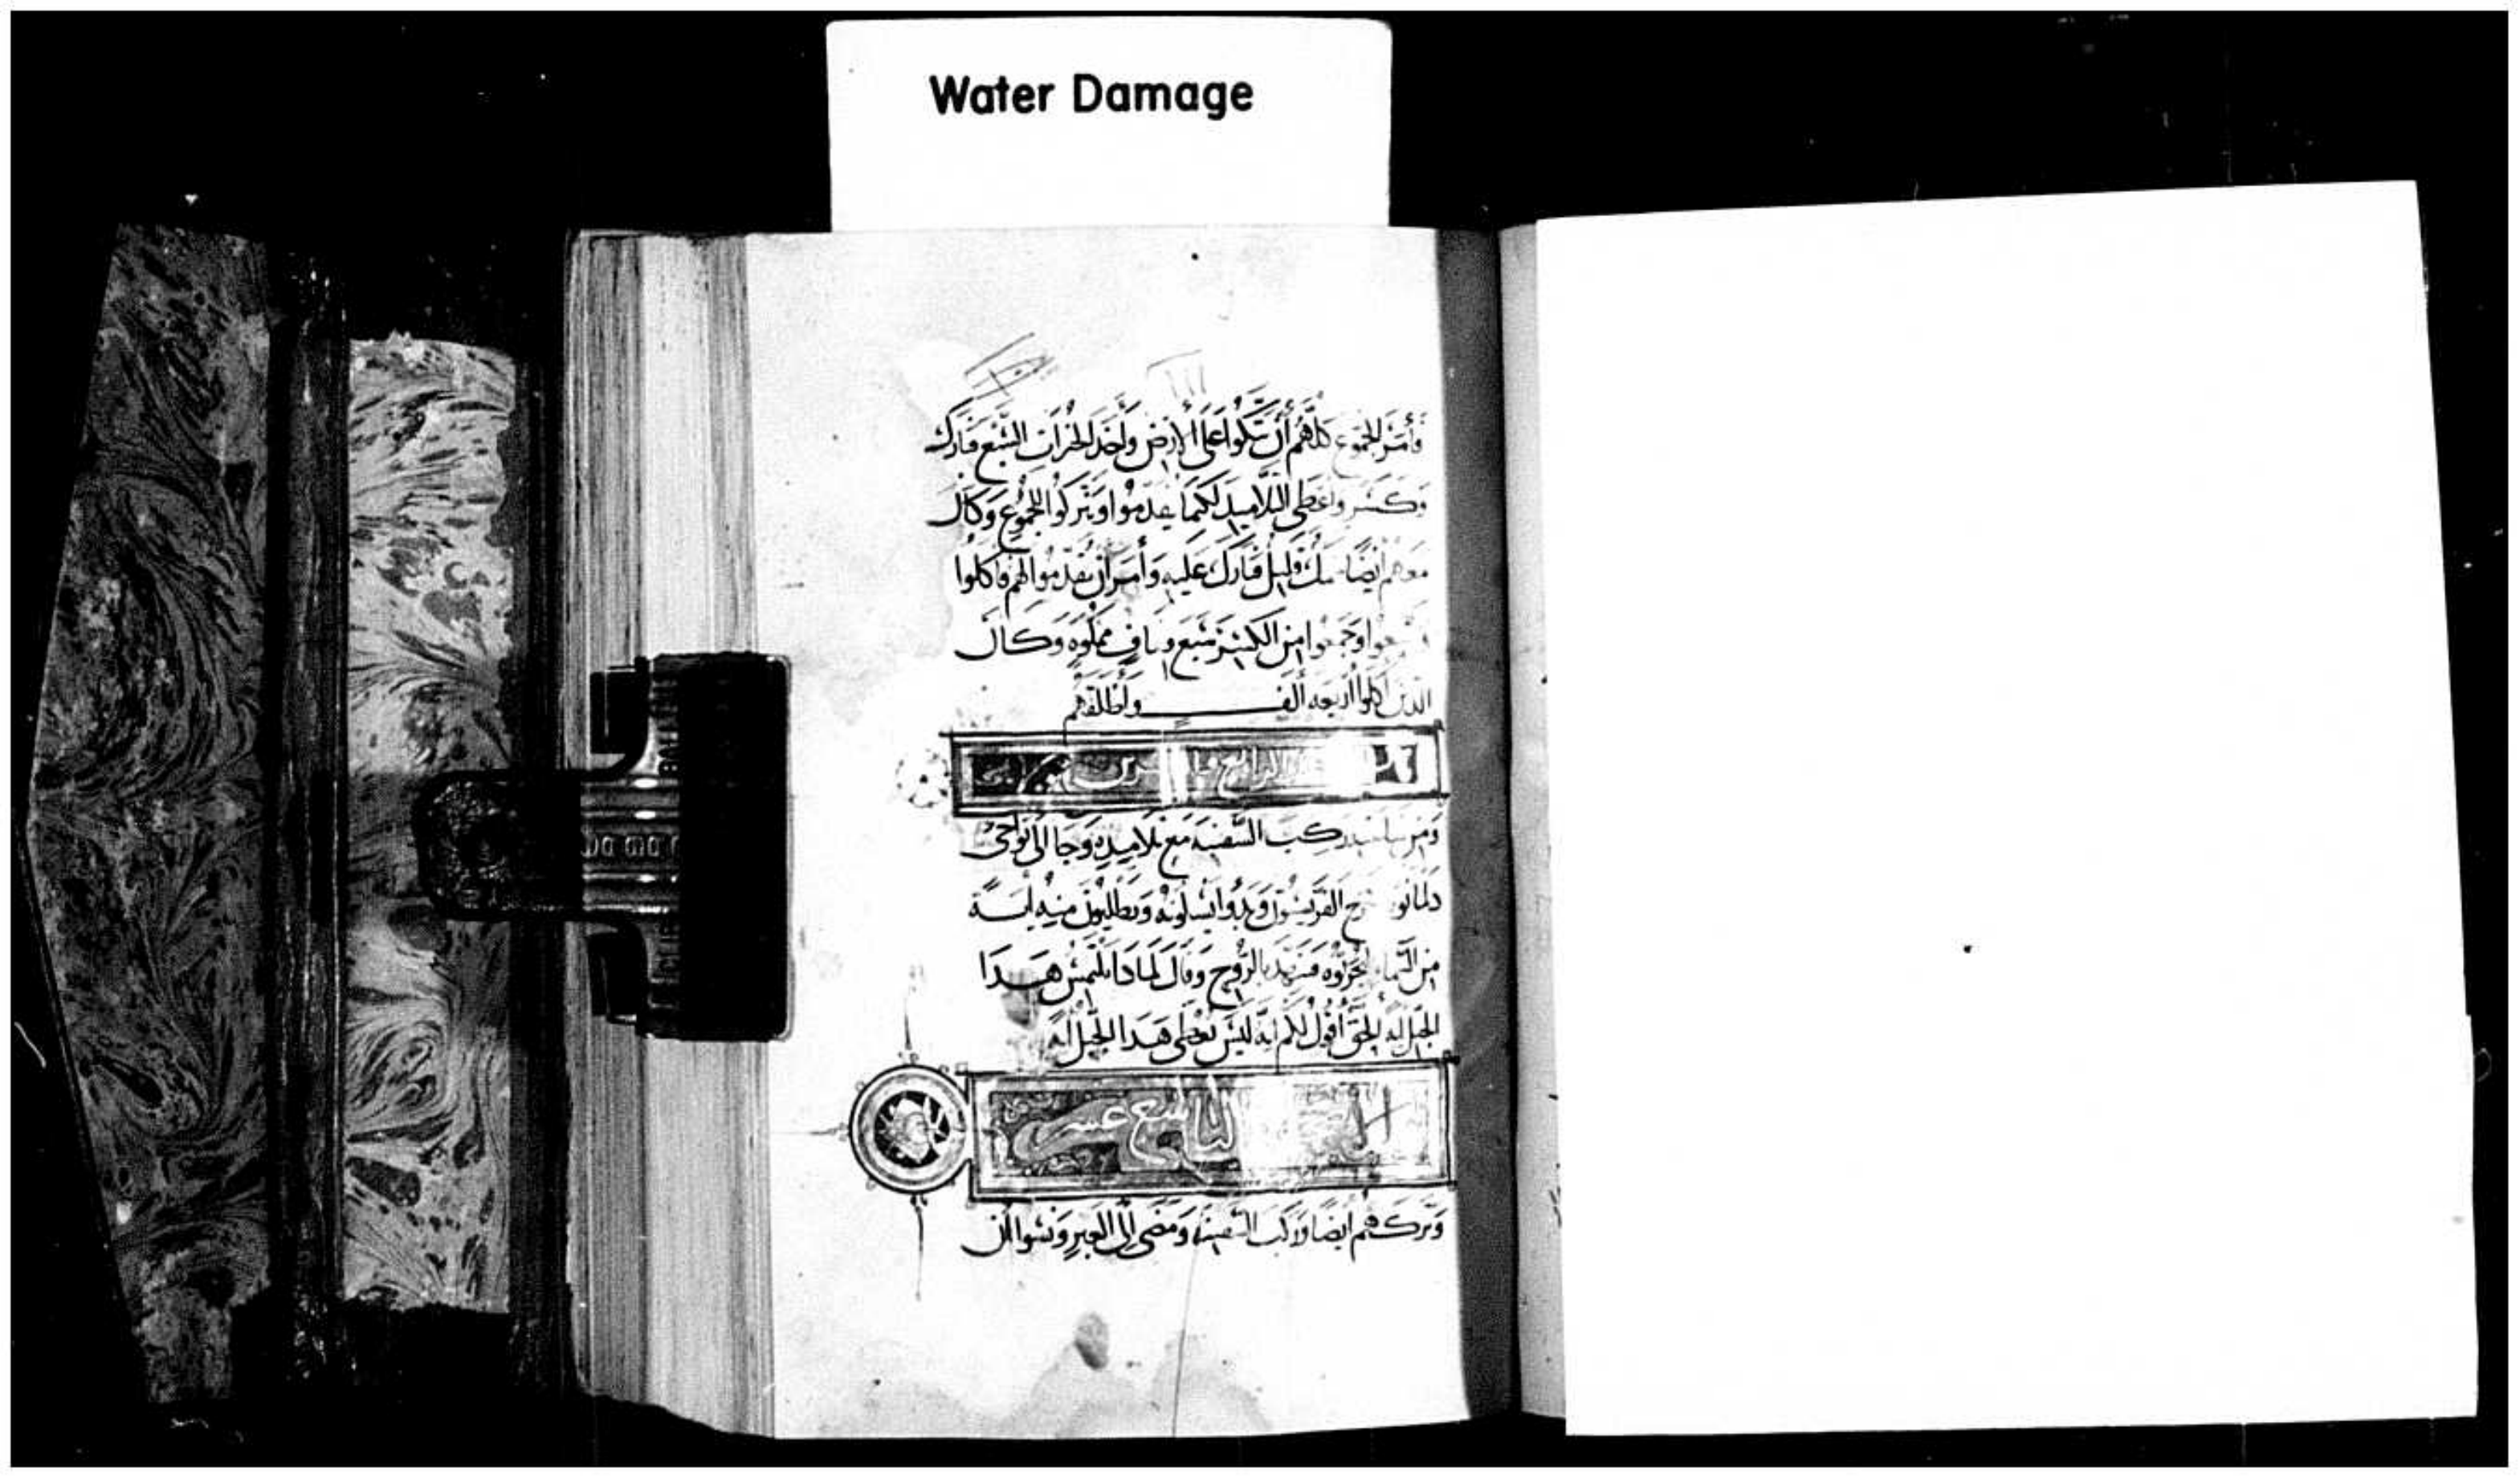 Water Damage
فأمر الجموع كلهم أن تتكوا على الأرض وأخذ الخبزات السبع فبارك
وكسر وأعطى التلاميد لكيما يقدموا وتركوا للجموع وكان
معهم أيضا سمك قليل فبارك عليه وأمر أن يقدموا لهم فأكلوا
وجمعوا من الكسر سبع مملوه وكان
الذين أكلوا أربعه ألف وأطلقهم
الرابع
ركب السفينه مع تلاميده وجا إلى نواحي
القريسيون وبدوا يسلونه ويطلبون منه ايه
من بالروح وقال لمادا يلتمس هدا
الجيل ايه الحق أقول لكم انه ليس تعطى هدا الجيل ايه
التاسع عشر
وتركهم أيضا وركب السفينه ومضى إلى العبر ونسوا أن